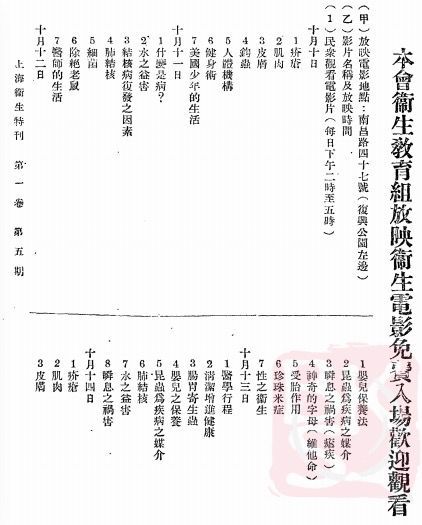 本會衞生教育組放映衞生電影免費入場歡迎觀看
(甲)放映電影地點:南昌路四十七號(復興公園左邊)
(乙)影片名稱及放映時間
(1)民衆觀看電影片(每日下午二時至五時)
十月十日
1疥瘡
2肌肉
3皮膚
4鈎蟲
5人體機構
6健身術
7美國少年的生活
十月十一日
1什麽是病?
2水之益害
3結核病復發之因素
4肺結核
5細菌
6除絕老鼠
7醫師的生活
十月十二日
1嬰兒保養法
2昆蟲爲疾病之媒介
3瞬息之禍害(瘧疾)
4神奇的字母(維他命)
5受胎作用
6珍珠米症
7性之衞生
十月十三日
1醫學行程
2清潔增進健康
3腸胃寄生蟲
4嬰兒之保養
5昆蟲爲疾病之媒介
6肺結核
7水之益害
8瞬息之禍害
十月十四日
1疥瘡
2肌肉
3皮膚
上海衞生特刊 第一卷 第五期